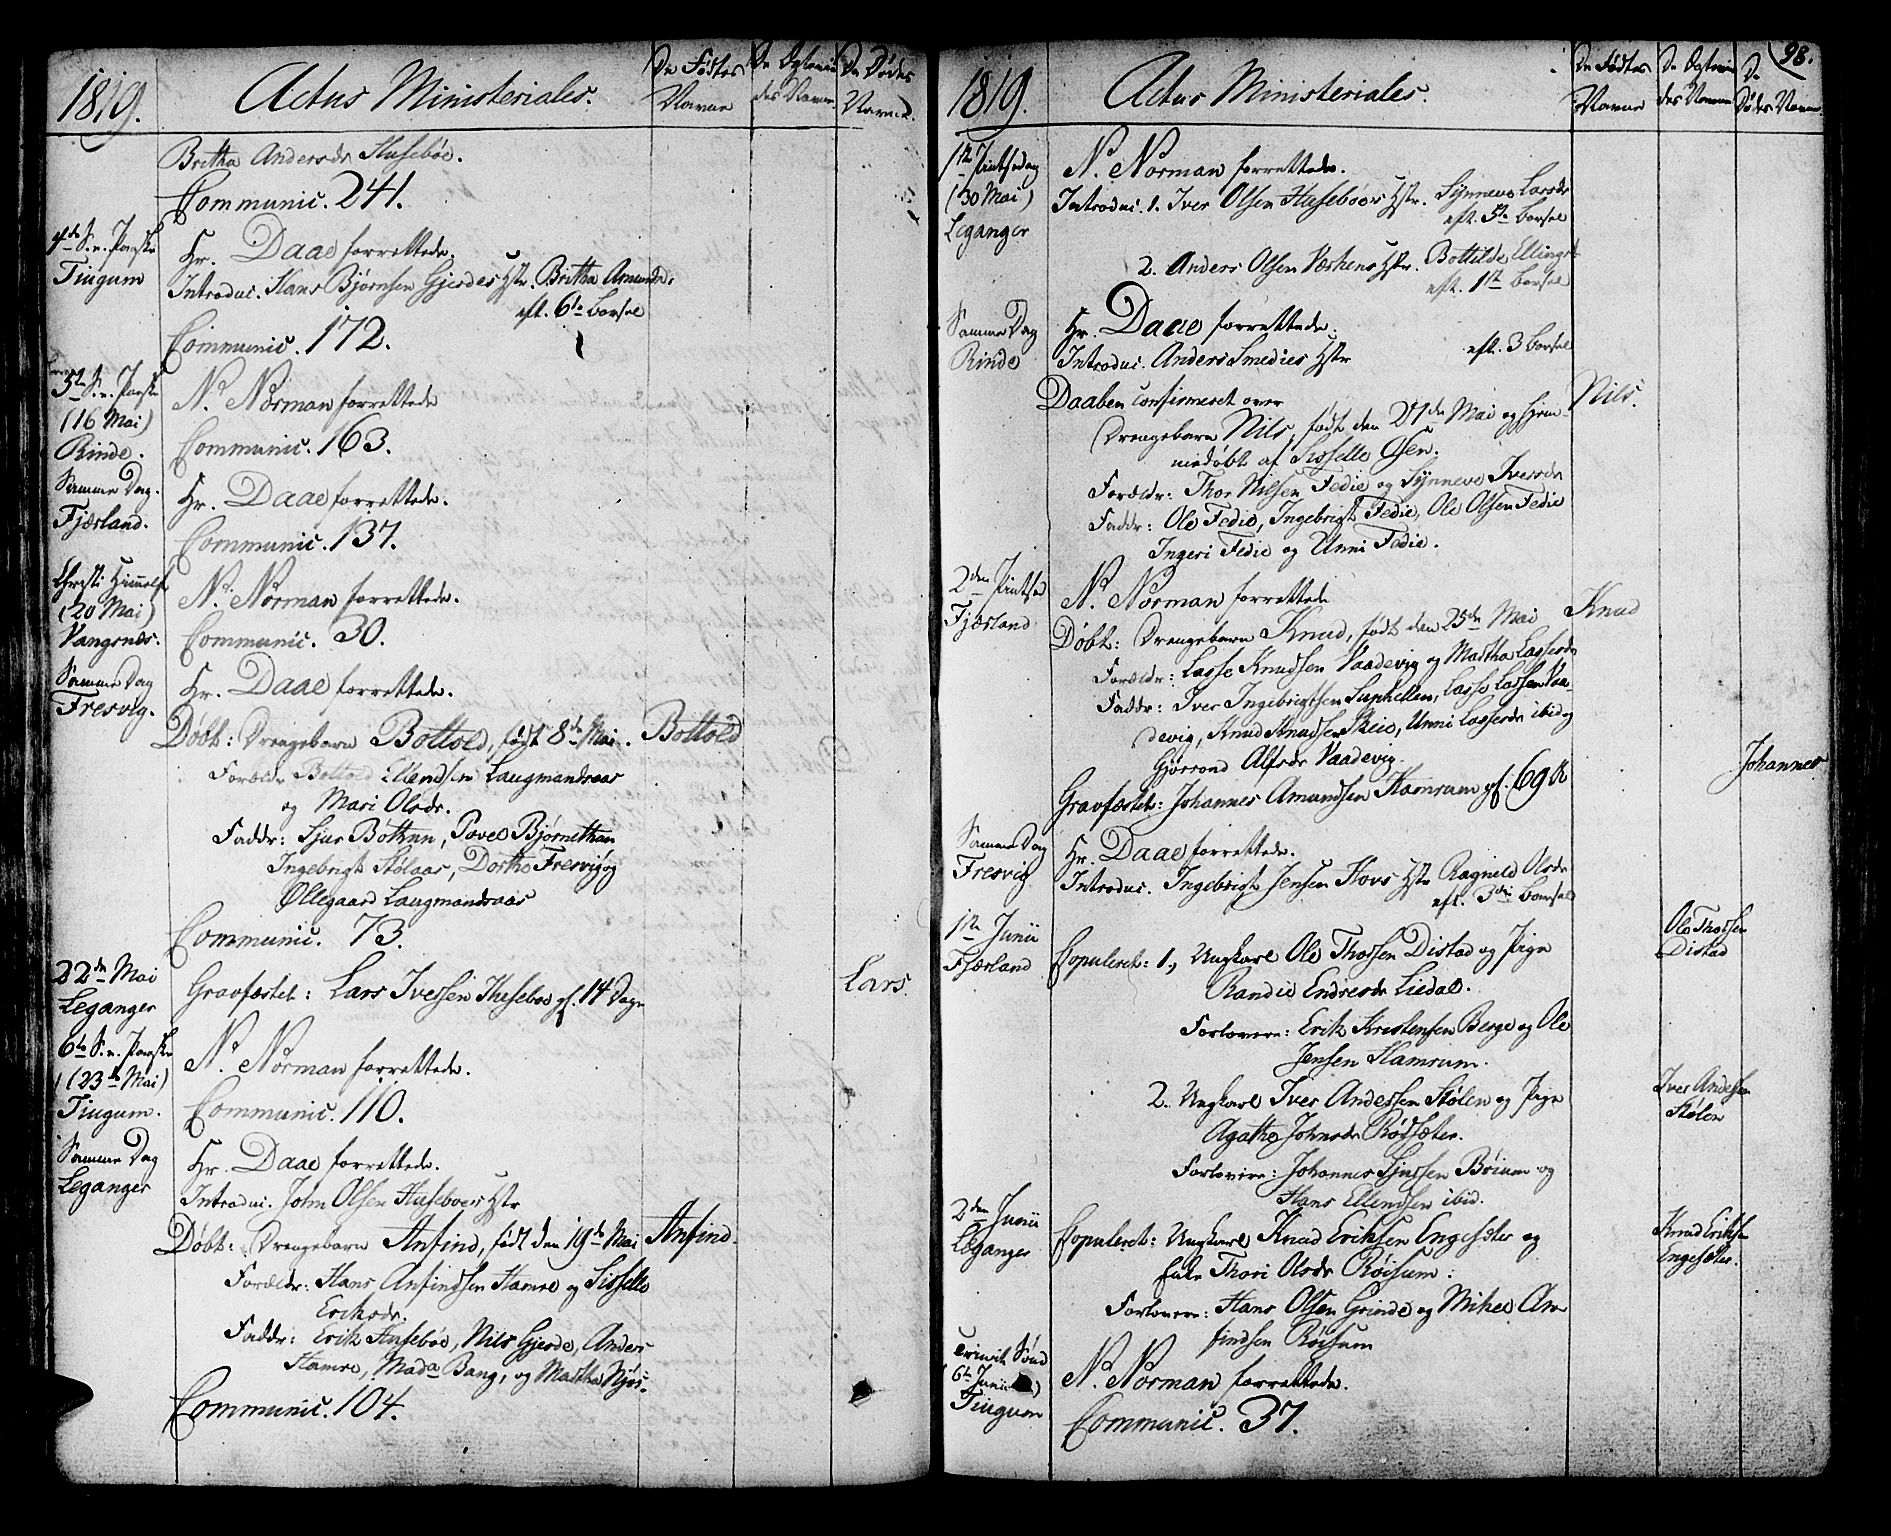 1819. Actus Ministeriales. De Fødtes Navne De Ægtevie des Navne De Dødes Navne.
Britha Andersdr Husebøe.
Communic. 241.
4de S. e. Paaske
Tiugum
Hr. Daae forrettede.
Introduc. Hans Bjørnsen Gjerdes Hstr. Britha Amundsd.
eft. 6te Barsel
Communic. 172.
5te S. e. Paaske
(16 Mai)
Rinde.
N. Norman forrettede
Communic. 163.
Samme Dag.
Fjærland.
Hr. Daae forrettede.
Communic. 137.
Christi Himmelf
(20 Mai)
Vangsnæs.
N. Norman forrettede.
Communic. 30.
Samme Dag
Fresvig.
Hr. Daae forrettede.
Døbt: Drengebarn Bottold, født 8de Mai. Bottold
Forældr Bottold Ellendsen Laugmandraas
og Mari Olsdr.
Faddr: Sjur Bothnn, Povel Bjørnethun
Ingebrigt Stølaas, Dortha Fresvig og
Øllegaard Laugmandraas
Communic. 73.
22de Mai
Leganger
Gravfæstet: Lars Iversen Husebøe gl. 14 Dage Lars.
6te S. e. Paaske
(23de Mai)
Tiugum.
N. Norman forrettede.
Communic. 110.
Samme Dag
Leganger
Hr. Daae forrettede.
Introduc. John Olsen Husebøes Hstr
Døbt: Drengebarn Anfind, født den 19de Mai Anfind.
Forældr: Hans Anfindsen Hamre og Sisselle
Eriksdr.
Faddr: Erik Husebøe, Nils Gjerde, Anders
Hamre, Mada Bang, og Martha Njøs.
Communic. 104.
98.
1819. Actus Ministeriales. De Fødtes Navne De Ægtevie des Navne De Dødes Navne
1te Pintsedag
(30 Mai)
Leganger
N. Norman forrettede.
Introduc. 1. Iver Olsen Husebøes Hstr. Synneve Larsdr
eft. 5te Barsel
2. Anders Olsen Væhens Hstr. Bottilde Ellingsd
eft. 1te Barsel
Samme Dag
Rinde
Hr. Daae forrettede.
Introduc. Anders Smedies Hstr eft. 3 Barsel
Daaben confirmeret over
Drengebarn Nils, født den 27de Mai og hjem- Nils.
medøbt af Sisselle Olsen.
Forældr: Thor Nilsen Fedie og Synneve Iversdr
Faddr: Ole Fedie, Ingebrigt Fedie, Ole Olsen Fedie
Ingeri Fedie og Unni Fedie.
2den Pintsed
Fjærland
N. Norman forrettede
Døbt: Drengebarn Knud, født den 25de Mai Knud
Forældr: Lasse Knudsen Vaadevig og Martha Lassesdr
Faddr: Iver Ingebrigtsen Suphellen, Lasse Lassen Vaa-
devig, Knud Knudsen Skeie, Unni Lassesdr ibid og
Gjørrond Alfsdr Vaadevig.
Gravfæstet: Johannes Amundsen Hamrum gl. 69 A Johannes
Samme Dag
Fresvig
Hr. Daae forrettede.
Introduc. Ingebrigt Jensen Hovs Hstr Ragnild Olsdr
eft. 3die Barsel
1te Junii
Fjærland
Copuleret: 1, Ungkarl Ole Thorsen Distad og Pige Ole Thorsen
Distad
Randie Endresdr Liedal.
Forlovere: Erik Kristensen Berge og Ole
Jensen Hamrum.
2. Ungkarl Iver Andersen Stølen og Pige Iver Andersen
Stølen
Agatha Johnsdr Rødsæter.
Forlovere: Johannes Sjursen Bøium og
Hans Ellendsen ibid.
2den Junii
Leganger
Copuleret: Ungkarl Knud Eriksen Engesæter og Knud Eriksen
Engesæter.
Enke Thori Olsdr Røisum:
Forlovere: Hans Olsen Grinde og Mikel An-
findsen Røisum
Trinit Sønd
6te Junii
Tiugum
N. Norman forrettede.
Communic. 37.